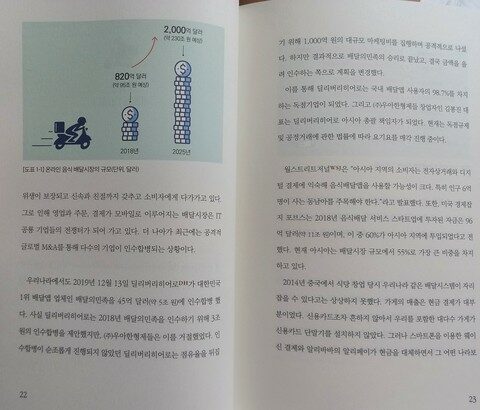 2,000억 달러
(약 230조 원 예상)
820억 달러
(약 95조 원 예상)
2018년
2025년
[도표 1-1] 온라인 음식 배달시장의 규모(단위, 달러)
위생이 보장되고 신속과 친절까지 갖추고 소비자에게 다가가고 있다.
그로 인해 영업과 주문, 결제가 모바일로 이루어지는 배달시장은 IT
공룡 기업들의 전쟁터가 되어 가고 있다. 더 나아가 최근에는 공격적
글로벌 M&A를 통해 다수의 기업이 인수합병되는 상황이다.
우리나라에서도 2019년 12월 13일 딜리버리히어로가 대한민국
1위 배달앱 업체인 배달의민족을 45억 달러(약 5조 원)에 인수합병 했
다. 사실 딜리버리히어로는 2018년 배달의민족을 인수하기 위해 3조
원의 인수합병을 제안했지만, (주)우아한형제들은 이를 거절했었다. 인
수합병이 순조롭게 진행되지 않았던 딜리버리히어로는 점유율을 뒤집
22
기 위해 1,000억 원의 대규모 마케팅비를 집행하며 공격적으로 나섰
다. 하지만 결과적으로 배달의민족의 승리로 끝났고, 결국 금액을 올
려 인수하는 쪽으로 계획을 변경했다.
이를 통해 딜리버리히어로는 국내 배달앱 사용자의 98.7%를 차지하
는 독점기업이 되었다. 그리고 (주)우아한형제들 창업자인 김봉진 대
표는 딜리버리히어로 아시아 총괄 책임자가 되었다. 현재는 독점규제
및 공정거래에 관한 법률에 따라 요기요를 매각 진행 중이다.
월스트리트저널은 “아시아 지역의 소비자는 전자상거래와 디지
털 결제에 익숙해 음식배달앱을 사용할 가능성이 크다. 특히 인구 6억
명이 사는 동남아를 주목해야 한다.”라고 발표했다. 또한, 미국 경제잡
지 포브스는 2018년 음식배달 서비스 스타트업에 투자된 자금은 96
억 달러(약 11조 원)이며, 이 중 60%가 아시아 지역에 투입되었다고 전
했다. 현재 아시아는 배달시장 규모에서 55%로 가장 큰 비중을 차지
하고 있다.
2014년 중국에서 식당 창업 당시 우리나라 같은 배달시스템이 자리
잡을 수 있다고는 상상하지 못했다. 가게의 매출은 현금 결제가 대부
분이었다. 신용카드조차 흔하지 않아서 우리를 포함한 대다수 가게가
신용카드 단말기를 설치하지 않았다. 그러나 스마트폰을 이용한 웨이
신 결제와 알리바바의 알리페이가 현금을 대체하면서 그 어떤 나라보
23